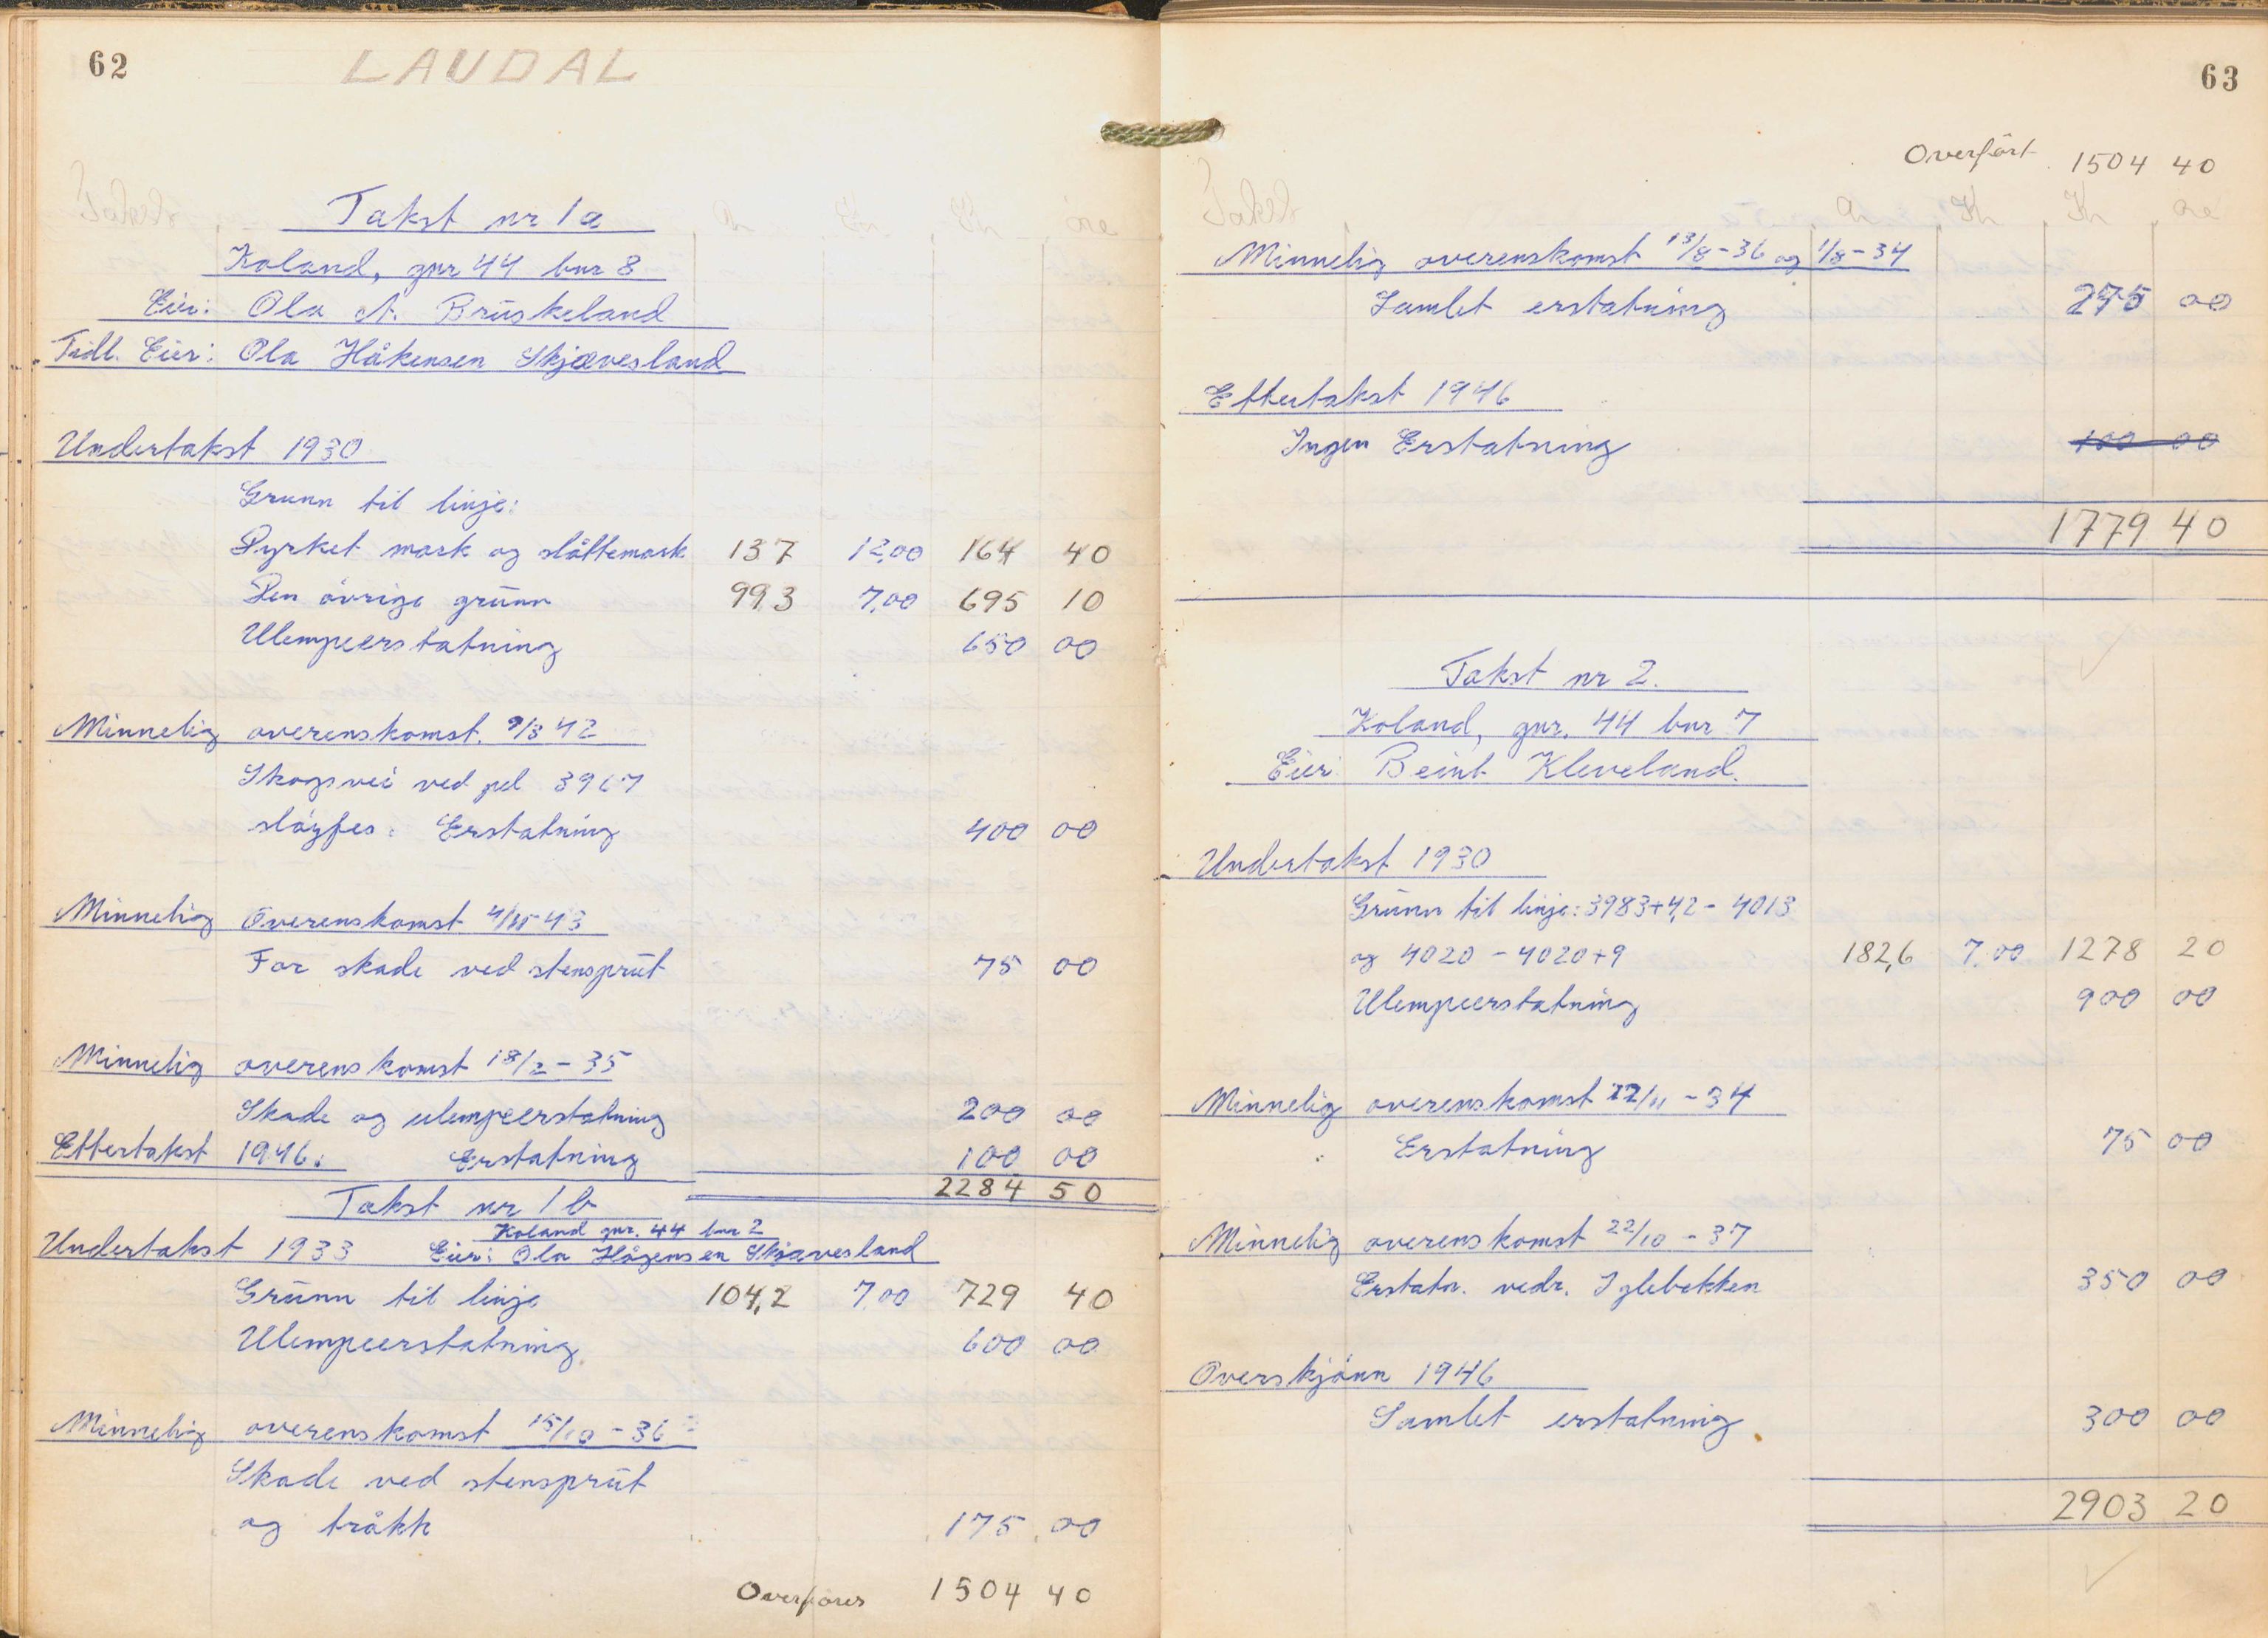 62
LAUDAL
Takst ar Kr Kr øre
Takst nr 1 a
Koland, gnr 44 bnr 8
Eier: Ola A. Brüskeland
Tidl. Eier: Ola Håkensen Skjævesland
Undertakst 1930
Grunn til linje:
Dyrket mark og slåttemark 13 7 12,00 164 40
Den övrige grünn 99 3 7,00 695 10
Ulempeerstatning 650 00
Minnelig overenskomst. 9/3 42
Skogsvei ved pel 3967
slöyfes. Erstatning 400 00
Minnelig Overenskomst 4/11-43
For skade ved stensprüt 75 00
Minnelig overenskomst 18/2-35
Skade og ulempeerstatning 200 00
Ettertakst 1946: Erstatning 100 00
2284 50
Takst nr 1 b
Koland gnr. 44 bnr 2
Undertakst 1933 Eier: Ola Hågensen Skjævesland
Grünn til linje 104,2 7,00 729 40
Ulempeerstatning 600 00
Minnelig overenskomst 15/10-36
Skade ved stensprüt
og tråkk 175 00
Overföres 1504 40
63
Overfört 1504 40
Takst ar Kr Kr øre
Minnelig overenskomst 13/8-36 og 1/8-34
Samlet erstatning 275 00
Ettertakst 1946
Ingen Erstatning 100 00
1779 40
Takst nr 2.
Koland, gnr. 44 bnr 7
Eier: Beint Kleveland.
Undertakst 1930
Grünn til linje: 3983+4,2 - 4013
og 4020 - 4020+9 182,6 7.00 1278 20
Ulempeerstatning 900 00
Minnelig overenskomst 22/11-34
Erstatning 75 00
Minnelig overenskomst 22/10-37
Erstatn. vedr. Iglebekken 350 00
Overskjönn 1946
Samlet erstatning 300 00
2903 20